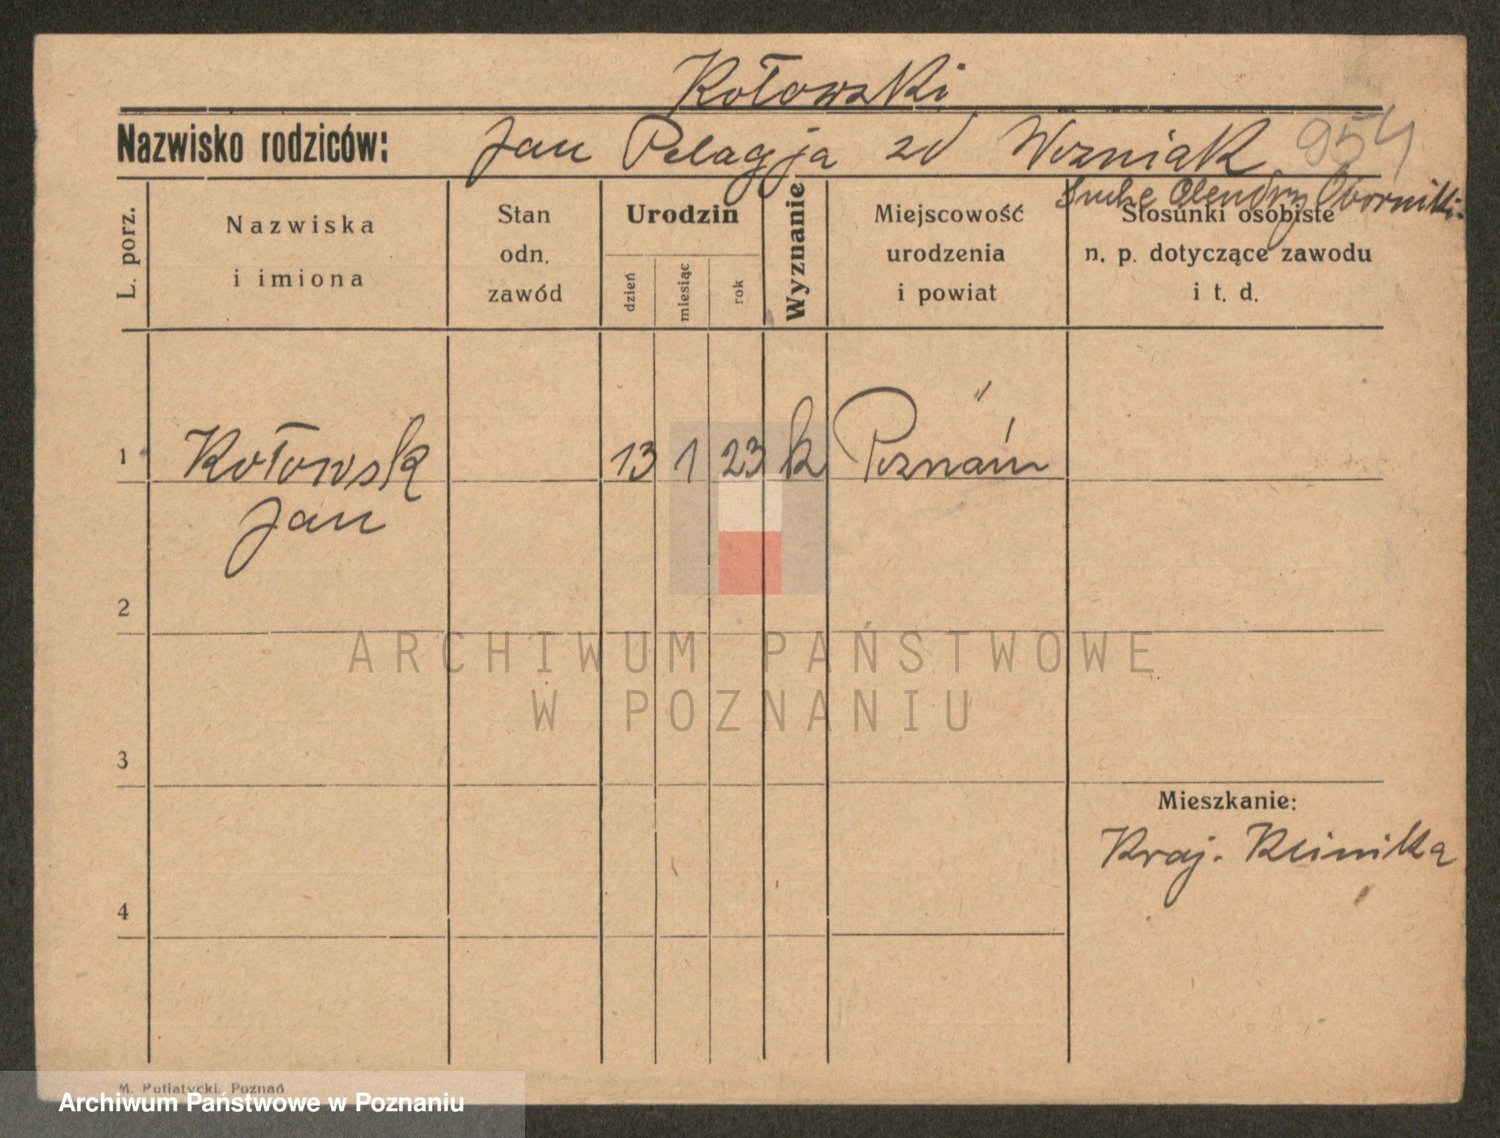 Kołowski
Nazwisko rodziców: Jan Pelagja zd Wozniak 954
Suche Olendry Oborniki
L. porz.
Nazwiska
i imiona
Stan
odn.
zawód
Urodzin
dzień
miesiąc
rok
Wyznanie
Miejscowość
urodzenia
i powiat
Stosunki osobiste
n. p. dotyczące zawodu
i t. d.
1 Kołowsk 13 1 23 k Poznań
Jan
2
ARCHIWUM PAŃSTWOWE
W POZNANIU
3
Mieszkanie:
Kraj.
4
M. Putiatycki, Poznań
Archiwum Państwowe w Poznaniu